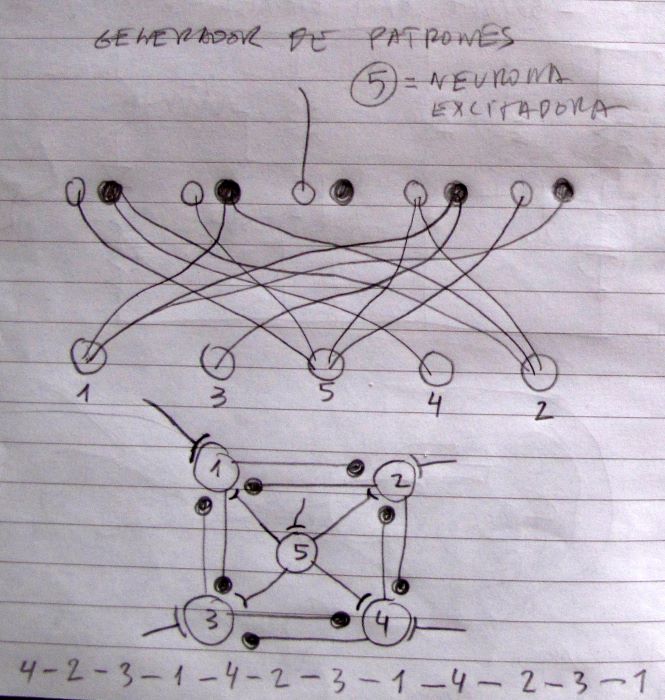 GENERADOR DE PATRONES
5 = NEURONA
EXCITADORA
1 3 5 4 2
1 2
5
3 4
4-2-3-1-4-2-3-1-4-2-3-1